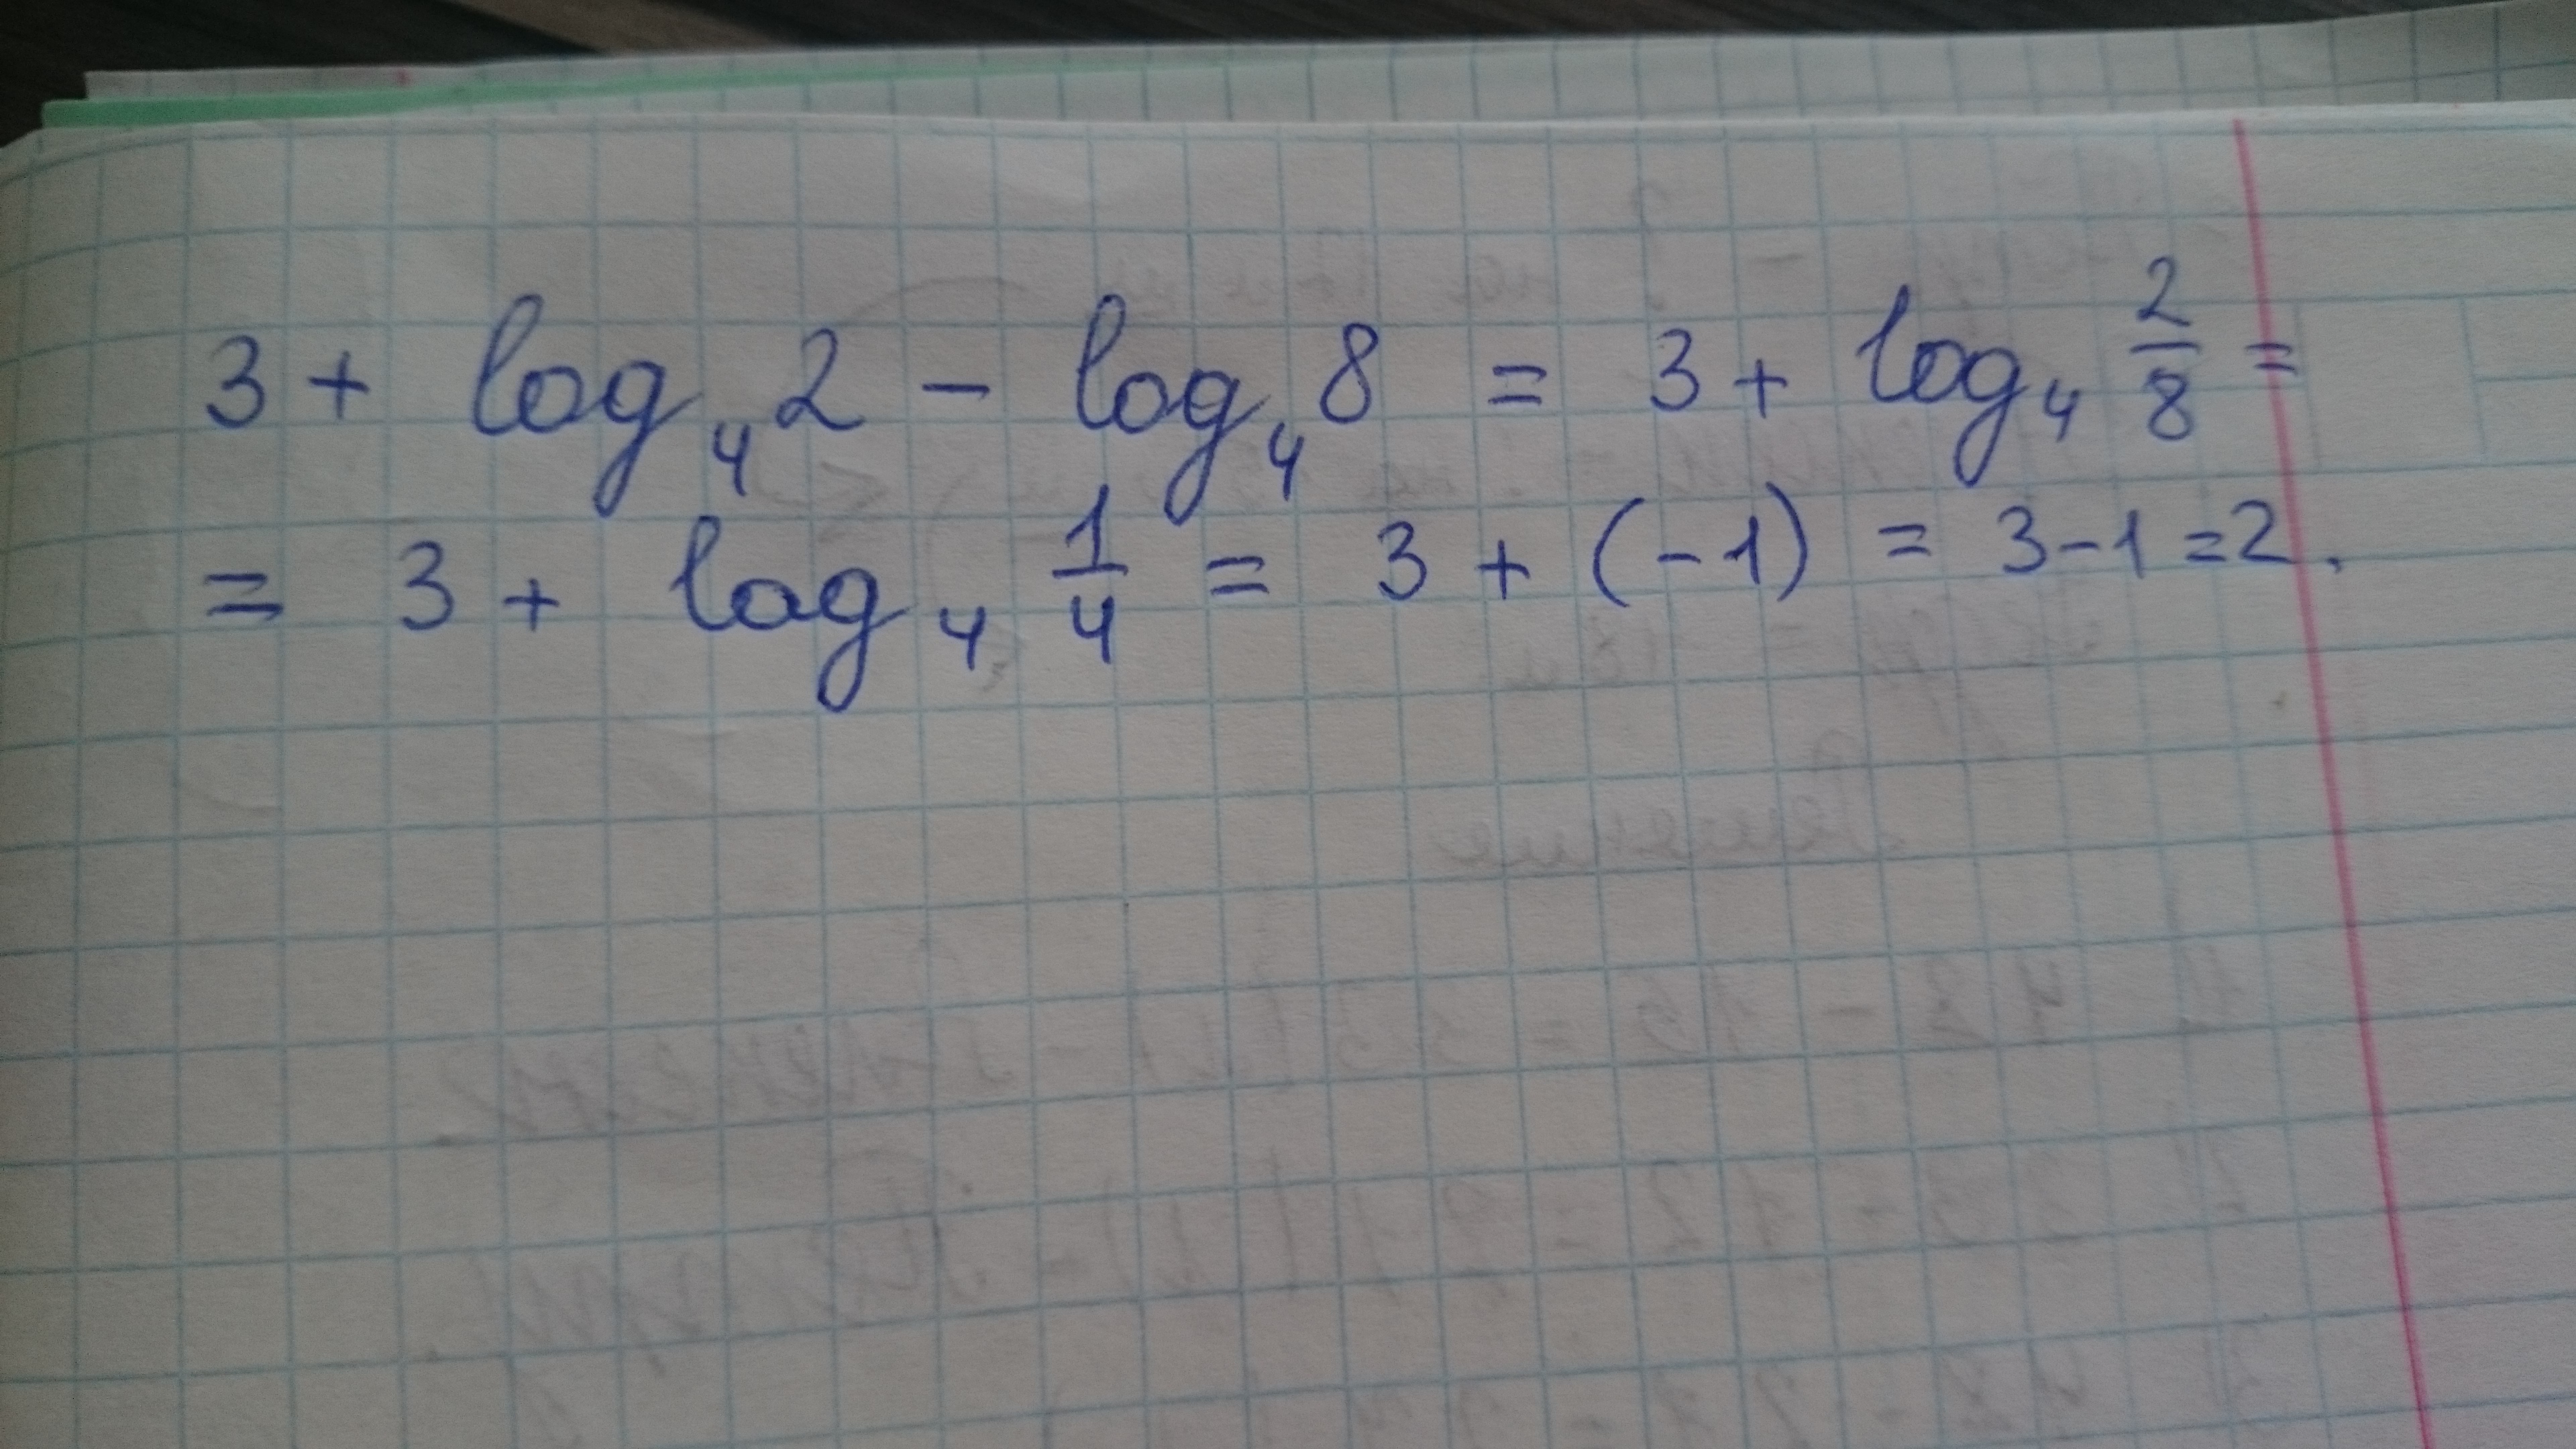 3 + log₄2 − log₄8 = 3 + log₄ 2/8 =
= 3 + log₄ 1/4 = 3 + (−1) = 3−1=2.